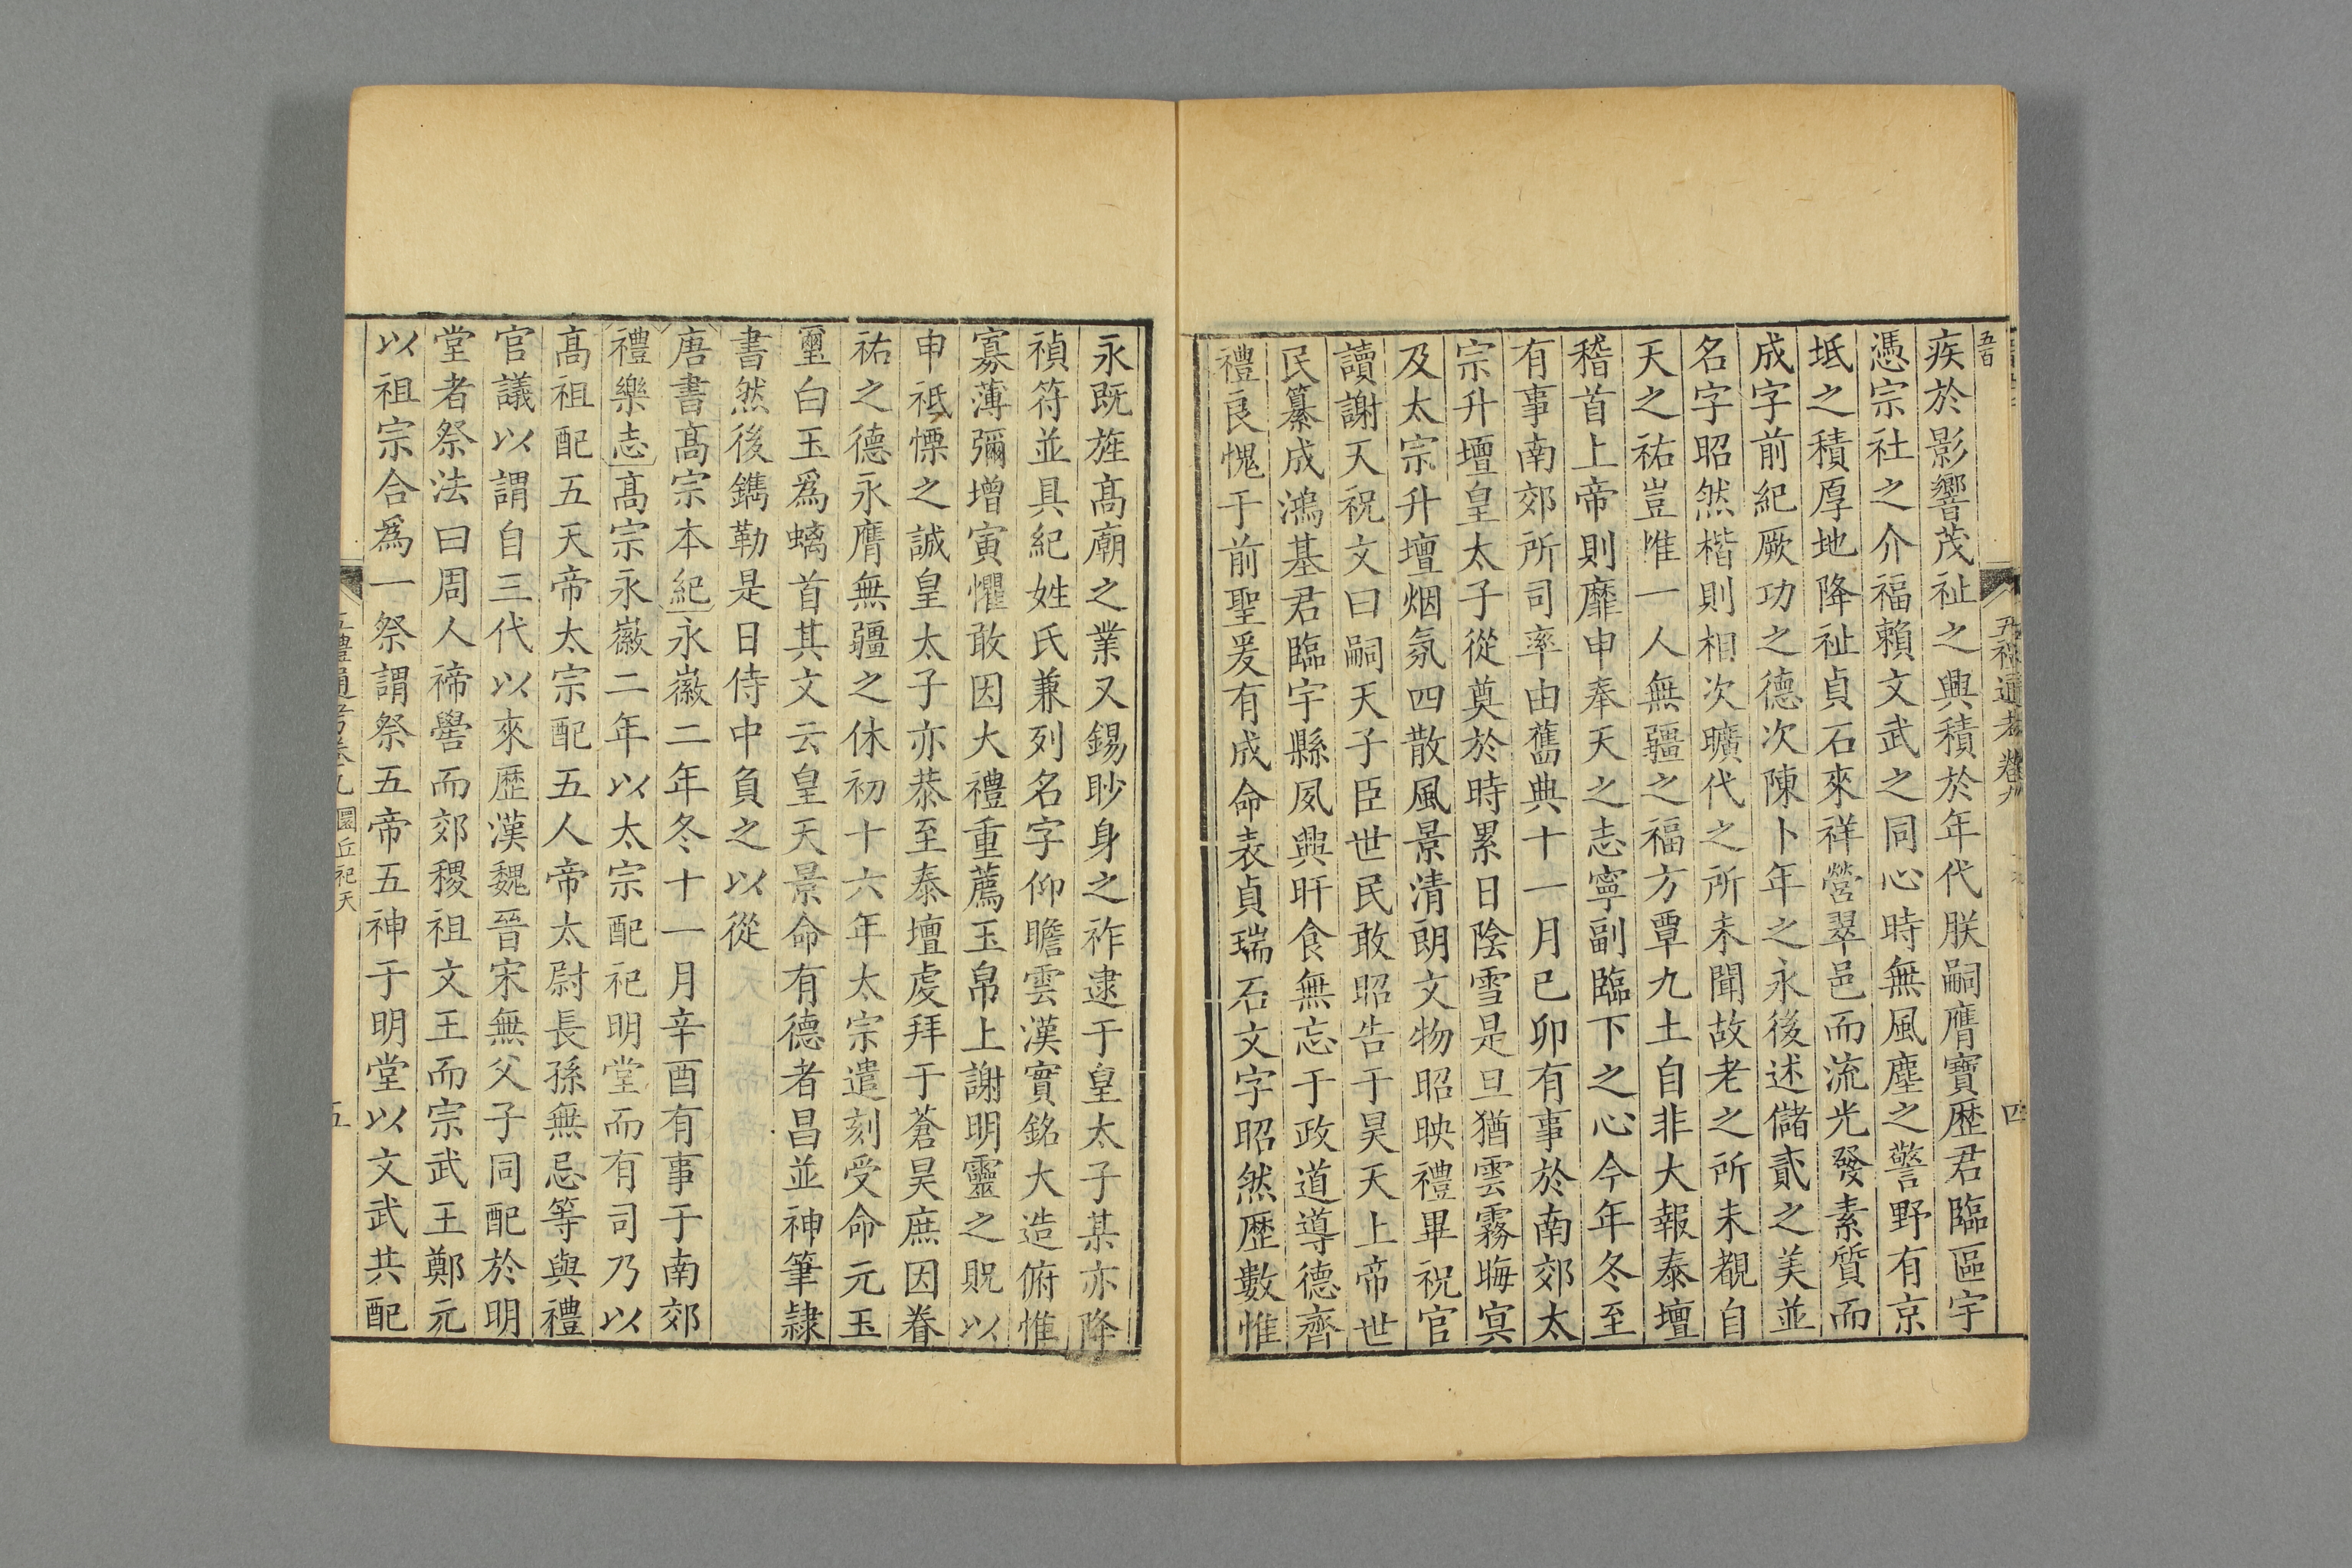 五百
五禮通考卷九
四
疾於影響茂祉之興積於年代朕嗣膺寶歷君臨區宇
憑宗社之介福賴文武之同心時無風塵之警野有京
坻之積厚地降祉貞石來祥營翠邑而流光發素質而
成字前紀厥功之德次陳卜年之永後述儲貳之美並
名字昭然楷則相次曠代之所未聞故老之所未覩自
天之祐豈惟一人無疆之福方覃九土自非大報泰壇
稽首上帝則靡申奉天之志寧副臨下之心今年冬至
有事南郊所司率由舊典十一月已卯有事於南郊太
宗升壇皇太子從奠於時累日陰雪是旦猶雲霧晦㝠
及太宗升壇烟氛四散風景清朗文物昭映禮畢祝官
讀謝天祝文曰嗣天子臣世民敢昭告于昊天上帝世
民纂成鴻基君臨宇縣夙興旰食無忘于政道導德齊
禮良愧于前聖爰有成命表貞瑞石文字昭然歷數惟
永既旌高廟之業又錫眇身之祚逮于皇太子某亦降
禎符並具紀姓氏兼列名字仰瞻雲漢實銘大造俯惟
寡薄彌增寅懼敢因大禮重薦玉帛上謝明靈之貺以
申祗慄之誠皇太子亦恭至泰壇虔拜于蒼昊庶因眷
祐之德永膺無疆之休初十六年太宗遣刻受命元玉
璽白玉爲螭首其文云皇天景命有德者昌並神筆隸
書然後鐫勒是日侍中負之以從
唐書高宗本紀永徽二年冬十一月辛酉有事于南郊
禮樂志高宗永徽二年以太宗配祀明堂而有司乃以
高祖配五天帝太宗配五人帝太尉長孫無忌等與禮
官議以謂自三代以來歷漢魏晉宋無父子同配於明
堂者祭法曰周人禘嚳而郊稷祖文王而宗武王鄭元
以祖宗合爲一祭謂祭五帝五神于明堂以文武共配
五禮通考卷九 圜丘祀天
五